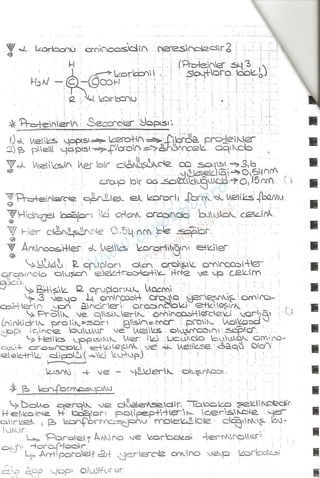 α karbonu aminoasidin neresindedir?
H (Proteinler sy 3
H₂N - C - COOH karbonil slaytlara bak!)
R α karbonu
* Proteinlerin Seconder Yapısı:
1) α heliks yapısı → keratin → fibröz proteinler
2) β pileli yapısı → fibroin → örümcek ağında
α heliksin her bir dönüşünde aa sayısı → 3,6
yüksekliği → 0,54nm
arayo bir aa 0,15nm
Proteinlerde görülen en kararlı form α heliks formu
Hidrojen bağları iki atom arasında bulunan çekim
Her dönüşünde 0.54 nm lik
Aminoasitler α heliks kararlılığını etkiler
→ Yüklü R grupları olan ardışık aminoasitler
arasında oluşan elektrostatik itme ve ya çekim
gücü
→ Bitişik R gruplarının hacmi
→ 3 veya 4 aminoasit arayla yerleşmiş amino-
asitlerin yan zincirleri arasındaki etkileşim
→ Prolin ve glisinlerin aminoasitlerdeki varlığı
yapı içinde bulunur ve heliks oluşmasını
→ Heliks yapısının her iki ucunda bulunan amino-
asit arasındaki etkileşim ve α helikse özgü olan
elektrik dipolü (→ iki kutup)
kısmı + ve - yüklerin oluşması.
* β konformasyonu
→ Daha gergin ve düzlemseldir. Tabaka şeklindedir.
Heliksine H bağları polipeptitlerin içerisinde yer
alırken, β konformasyonu molekülde dağılmış bu-
lunur.
→ Paralel; Amino ve karboksi terminalleri
aynı taraftadır
→ Antiparalel; zıt yerlerde amino veya karboksi
zig zag yapı oluşturur.